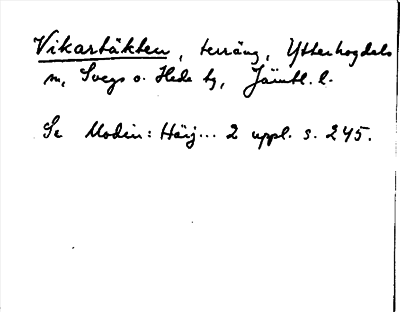 Vikartäkten, terräng, Ytterhogdals
m, Svegs o. Hede tg, Jämtl. l.
Se Modin: Härj... 2 uppl. s. 245.